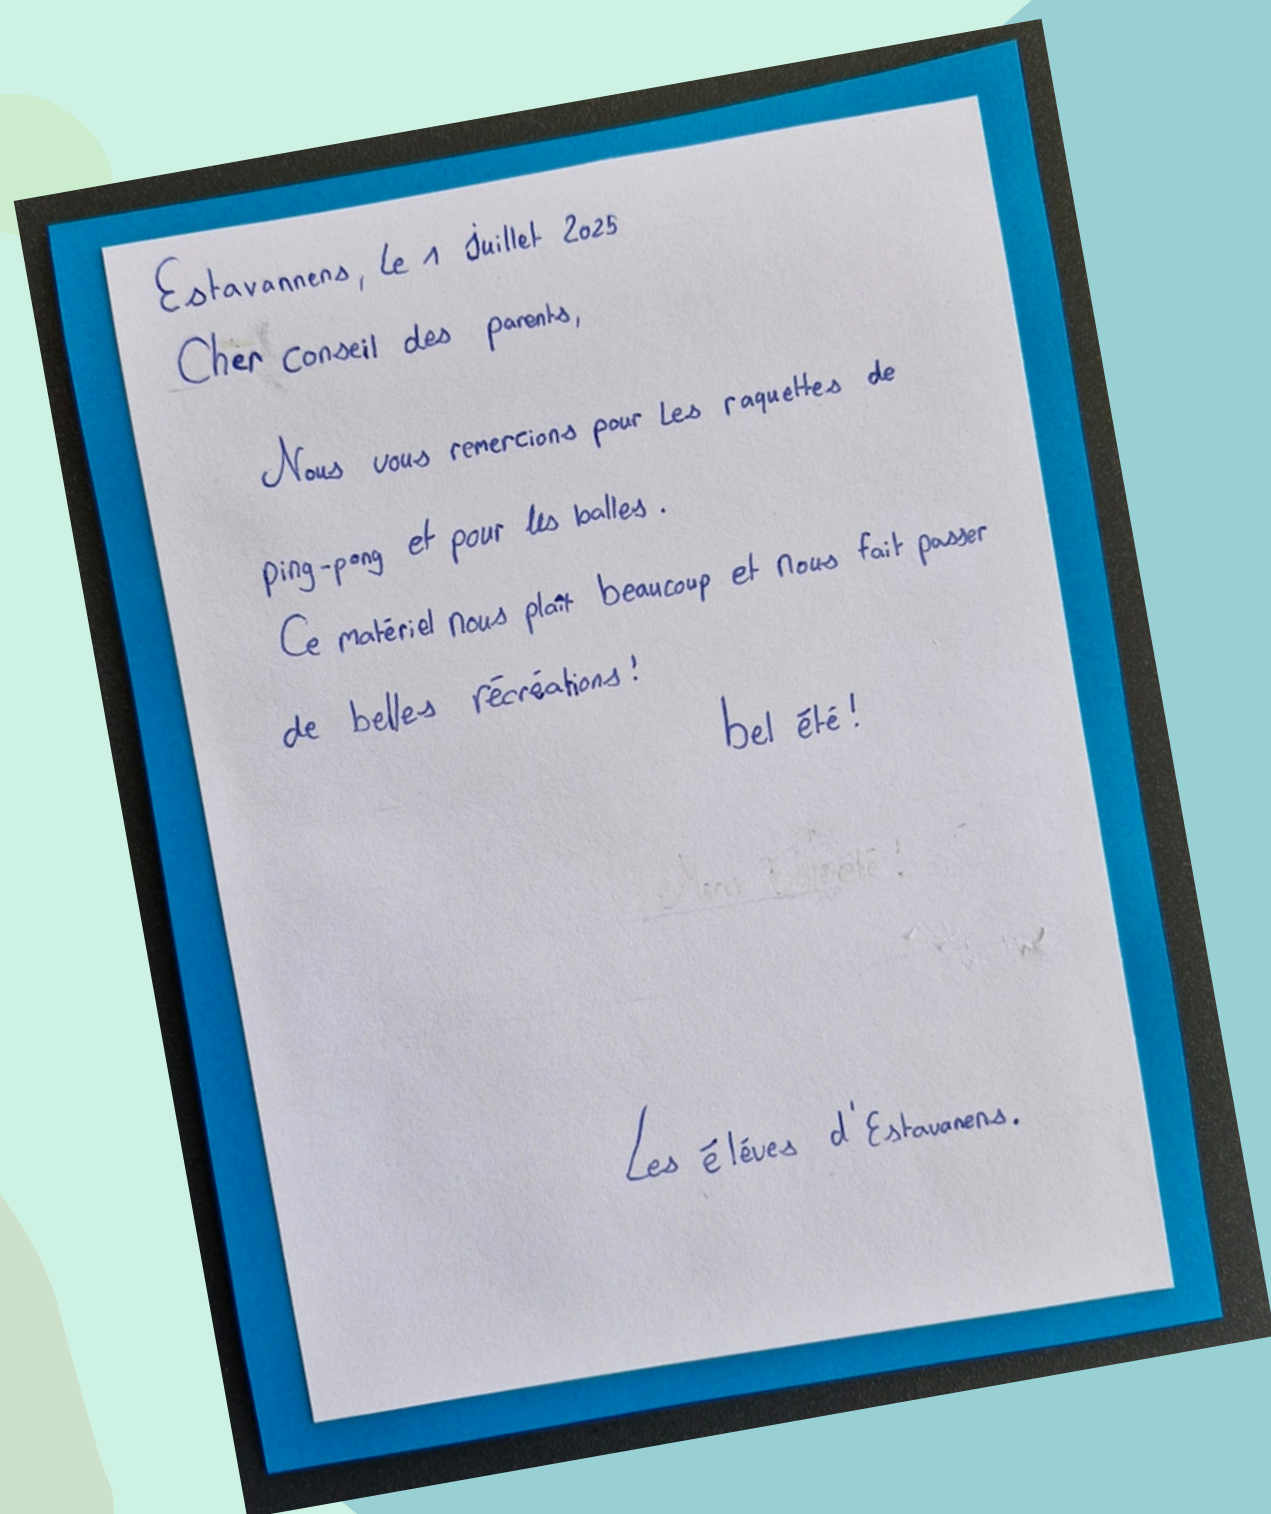 Estavannens, le 1 juillet 2025
Cher conseil des parents,
Nous vous remercions pour les raquettes de
ping-pong et pour les balles.
Ce matériel nous plaît beaucoup et nous fait passer
de belles récréations !
bel été !
Les éléves d'Estavanens.